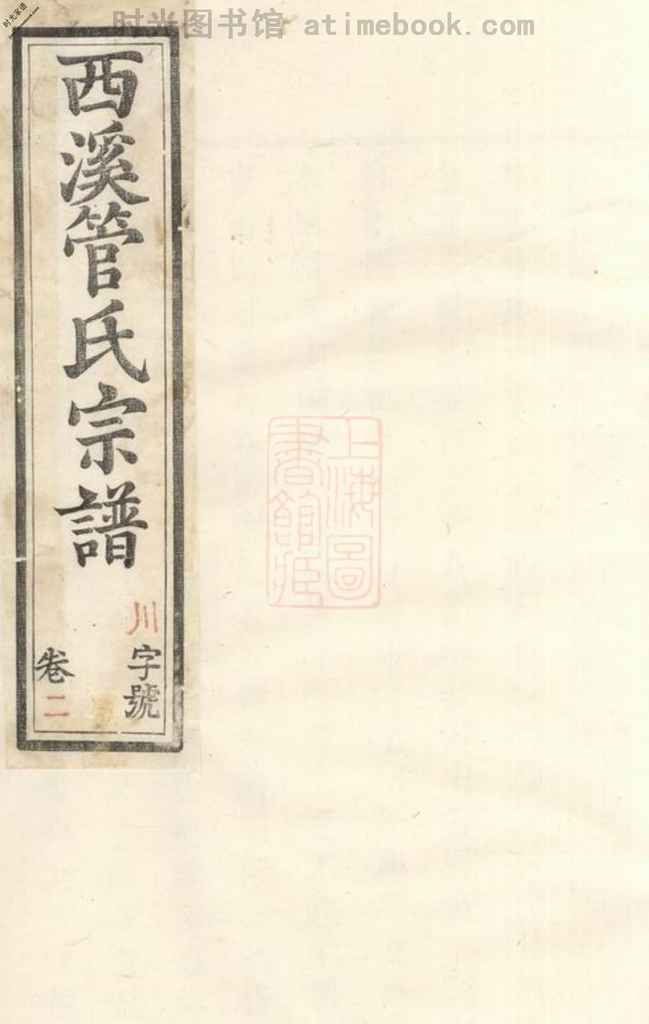 时光图书馆 atimebook.com
西溪管氏宗譜
川字號
卷二
上海圖
書館藏